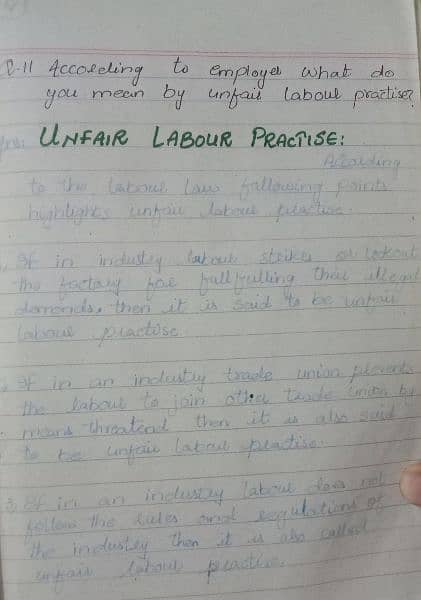 Q-11 According to employer what do
you mean by unfair labour practise?
Ans: UNFAIR LABOUR PRACTISE:
According
to the labour laws following points
highlights unfair labour practise.
If in industry labour strikes or lockout
the factory for fullfulling their illegal
demands, then it is said to be unfair
labour practise.
2 If in an industry trade union prevents
the labour to join other trade union by
means threatend then it is also said
to be unfair labour practise.
3 If in an industry labour does not
follow the rules and regulations of
the industry then it is also called
unfair labour practise.